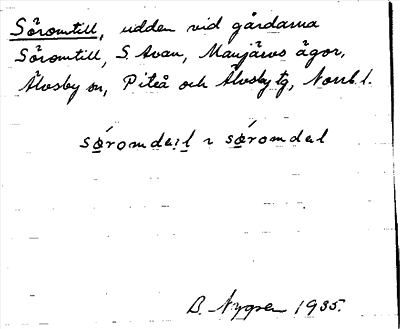 Söromtill, udden vid gårdarna
Söromtill, S. Avan, Manjärvs ägor,
Älvsby sn, Piteå och Älvsby tg, Norrb. l.
sǿ̱romda̱ı̣l ~ sǿ̱romdal
B. Nygren 1935.